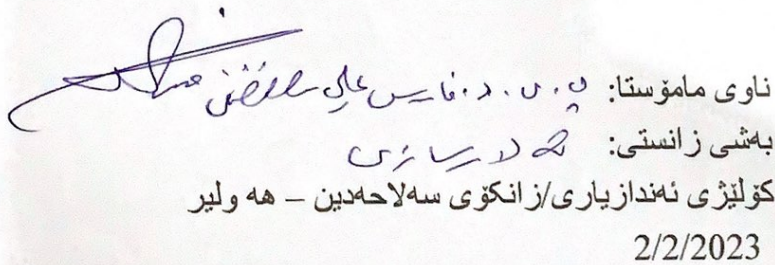 ناوی مامۆستا: پ. ی. د. فارس علي مصطفى
بەشی زانستی: تەلارسازی
کۆلێژی ئەندازیاری/زانکۆی سەلاحەدین – هه ولیر
2/2/2023